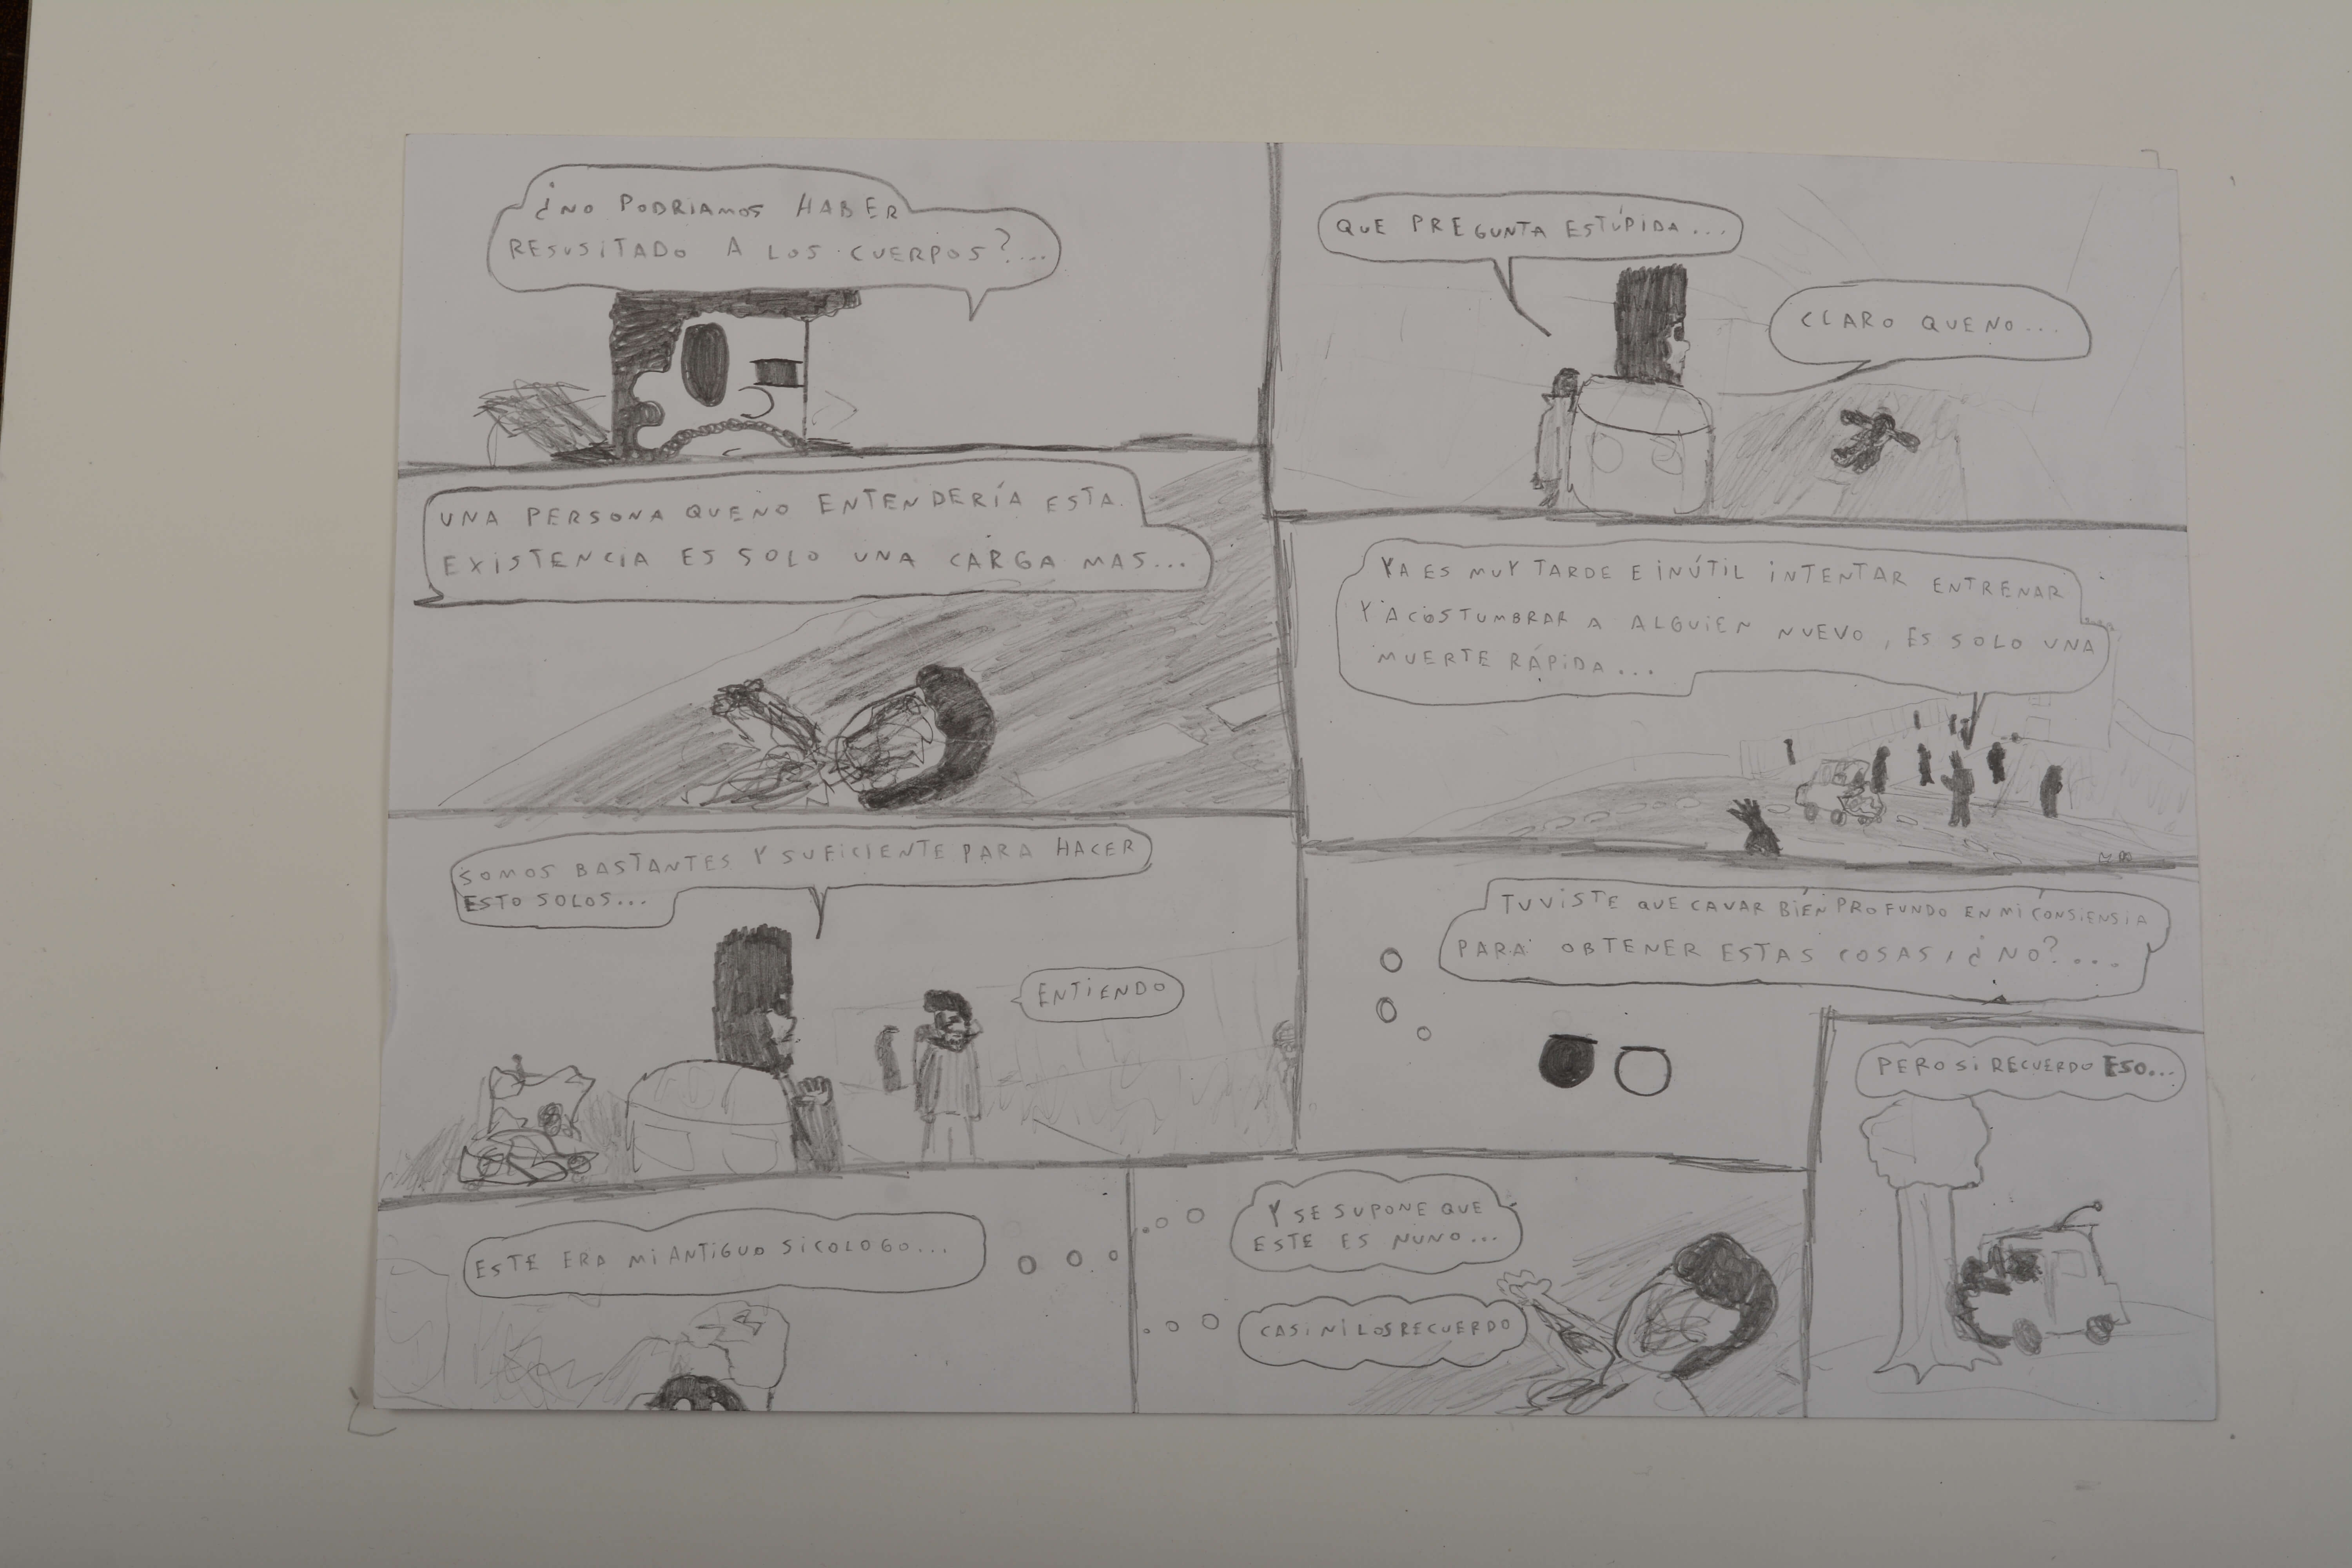 ¿NO PODRIAMOS HABER
RESUSITADO A LOS CUERPOS?...
QUE PREGUNTA ESTÚPIDA...
CLARO QUE NO...
UNA PERSONA QUE NO ENTENDERÍA ESTA
EXISTENCIA ES SOLO UNA CARGA MAS...
YA ES MUY TARDE E INÚTIL INTENTAR ENTRENAR
Y ACOSTUMBRAR A ALGUIEN NUEVO, ES SOLO UNA
MUERTE RÁPIDA...
SOMOS BASTANTES Y SUFICIENTE PARA HACER
ESTO SOLOS...
ENTIENDO
TUVISTE QUE CAVAR BIÉN PROFUNDO EN MI CONSIENSIA
PARA OBTENER ESTAS COSAS, ¿NO?...
ESTE ERA MI ANTIGUO SICOLOGO...
Y SE SUPONE QUE
ESTE ES NUNO...
CASI NI LOS RECUERDO
PERO SI RECUERDO ESO...